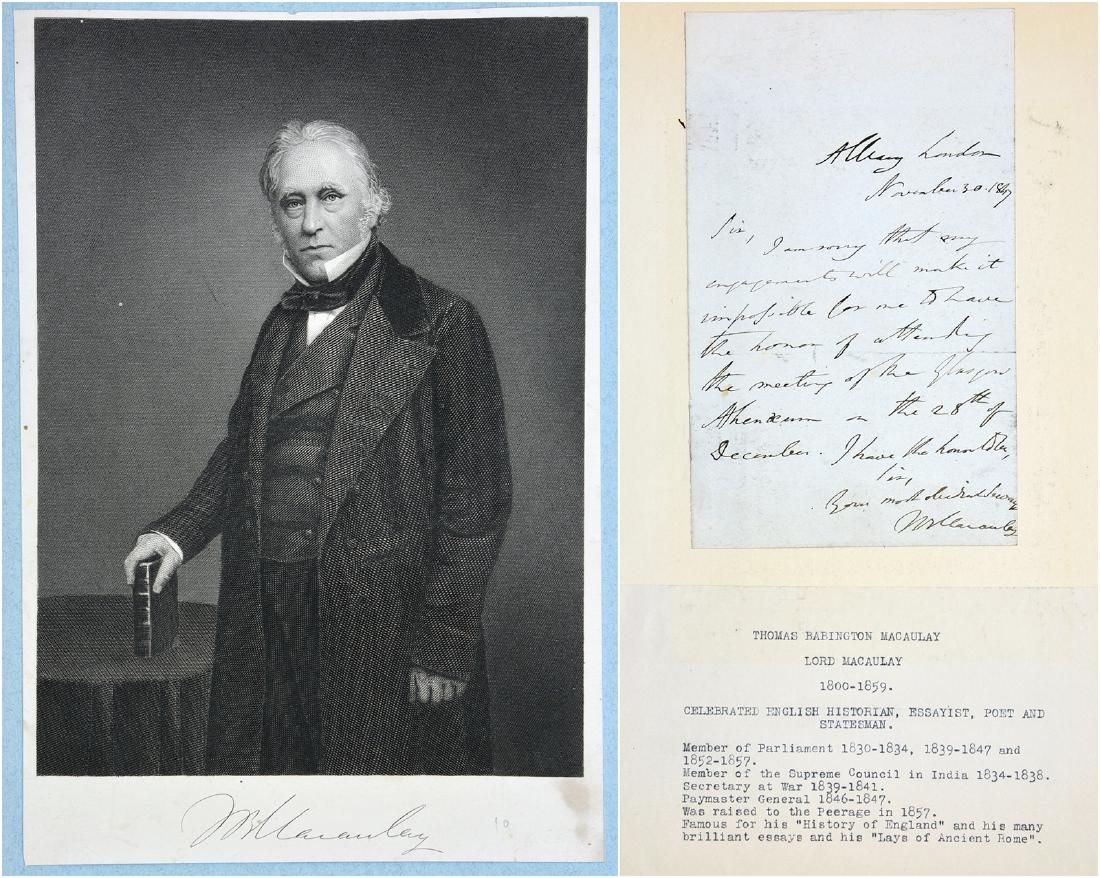 TBMacaulay
10
Albany London
November 30. 1847
Sir,
I am sorry that my
engagements will make it
impossible for me to have
the honor of attending
the meeting of the Glasgow
Athenæum on the 28th of
December. I have the honor to be,
Sir,
Your most obedient Servant
TBMacaulay
THOMAS BABINGTON MACAULAY
LORD MACAULAY
1800-1859.
CELEBRATED ENGLISH HISTORIAN, ESSAYIST, POET AND
STATESMAN.
Member of Parliament 1830-1834, 1839-1847 and
1852-1857.
Member of the Supreme Council in India 1834-1838.
Secretary at War 1839-1841.
Paymaster General 1846-1847.
Was raised to the Peerage in 1857.
Famous for his "History of England" and his many
brilliant essays and his "Lays of Ancient Rome".